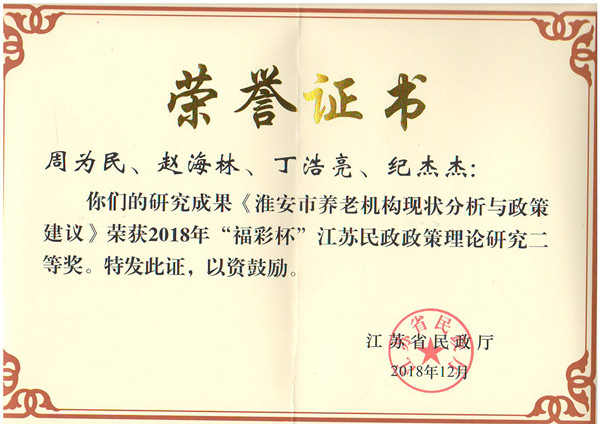 荣誉证书
周为民、赵海林、丁浩亮、纪杰杰：
你们的研究成果《淮安市养老机构现状分析与政策
建议》荣获2018年“福彩杯”江苏民政政策理论研究二
等奖。特发此证，以资鼓励。
江苏省民政厅
江苏省民政厅
2018年12月